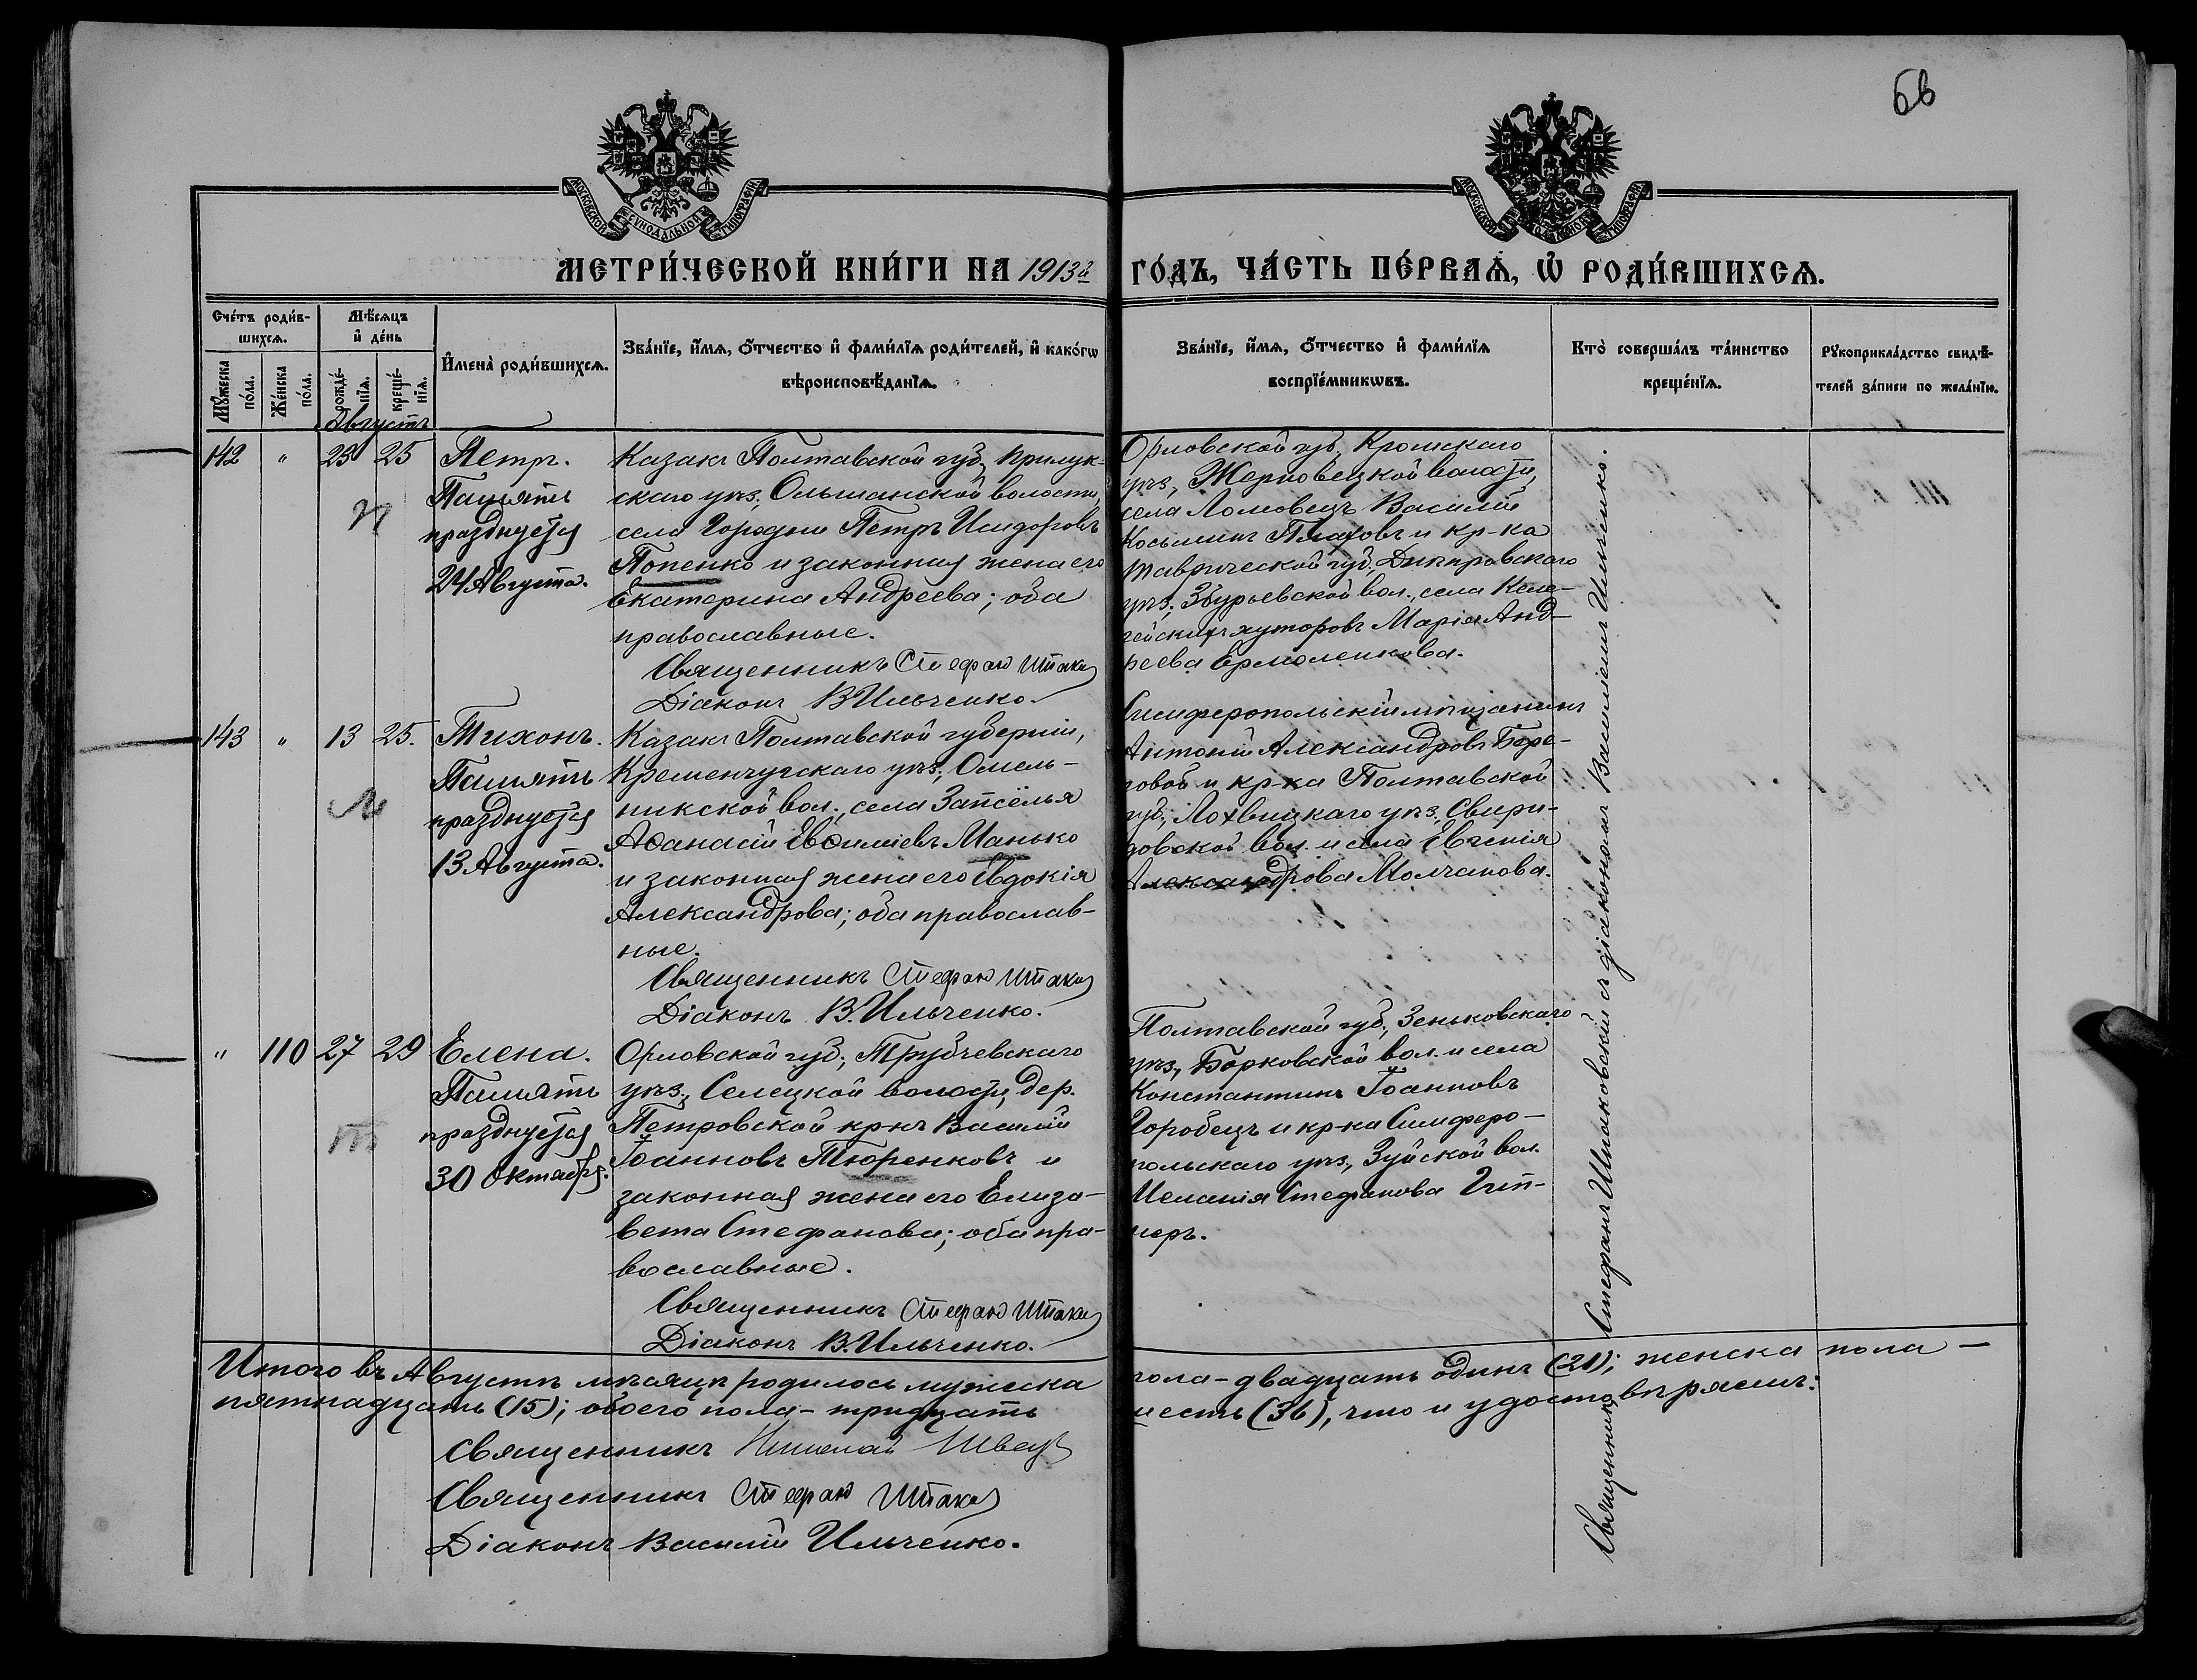 66
МОСКОВСКОЙ СѴНОДАЛЬНОЙ ТИПОГРАФІИ
МОСКОВСКОЙ СѴНОДАЛЬНОЙ ТИПОГРАФІИ
МЕТРИ́ЧЕСКОЙ КНИ́ГИ НА 1913й ГО́ДЪ, ЧА́СТЬ ПЕ́РВАѦ, Ѡ РОДИ́ВШИХСѦ.
Сче́тъ роди́в-
шихсѧ.
Мꙋ́жеска
по́ла.
Же́нска
по́ла.
Мѣ́сѧцъ
и҆ де́нь
рожде́-
нїѧ.
креще́-
нїѧ.
И҆мена̀ роди́вшихсѧ.
Зва́нїе, и҆́мѧ, ѻ҆́тчество и҆ фами́лїѧ роди́телей, и҆ како́гѡ
вѣроисповѣ́данїѧ.
Зва́нїе, и҆́мѧ, ѻ҆́тчество и҆ фами́лїѧ
воспрїе́мникѡвъ.
Кто̀ соверша́лъ та́инство
креще́нїѧ.
Рꙋкоприкла́дство свидѣ́-
телей за́писи по жела́нїю.
Августъ
142 " 23 25 Петръ.
Память
празднуется
24 Августа.
Казакъ Полтавской губ., Прилук-
скаго уѣз., Ольшанской волости,
села Городни Петръ Исидоровъ
Попенко и законная жена его
Екатерина Андреева; оба
православные.
Священникъ Стефанъ Штак
Діаконъ В.Ильченко.
Орловской губ., Кромскаго
уѣз., Жерновецкой волости,
села Ломовецъ Василій
Косьминъ Плаховъ и кр-ка
Таврической губ., Днѣпровскаго
уѣз., Збурьевской вол., села Келе-
гейскихъ хуторовъ Марія Анд-
реева Ермоленкова.
143 " 13 25. Тихонъ.
Память
празднуется
13 Августа.
Казакъ Полтавской губерніи,
Кременчугскаго уѣз., Омель-
никской вол., села Запсёлья
Аѳанасій Евѳиміевъ Манько
и законная жена его Евдокія
Александрова; оба православ-
ные.
Священникъ Стефанъ Штак
Діаконъ В.Ильченко.
Симферопольскій мѣщанинъ
Антоній Александровъ Бере-
говой и кр-ка Полтавской
губ., Лохвицкаго уѣз., Свири-
довской вол. и села Евгенія
Александрова Молчанова.
" 110 27 29 Елена.
Память
празднуется
30 Октября.
Орловской губ., Трубчевскаго
уѣз., Селецкой волости, дер.
Петровской кр-нъ Василій
Іоанновъ Тюренковъ и
законная жена его Елиза-
вета Стефанова; оба пра-
вославные.
Священникъ Стефанъ Штак
Діаконъ В.Ильченко.
Полтавской губ., Зеньковскаго
уѣз., Борковской вол. и села
Константинъ Іоанновъ
Горобецъ и кр-ка Симферо-
польскаго уѣз., Зуйской вол.
Меланія Стефанова Гит-
неръ.
Священникъ Стефанъ Штаковскій съ діакономъ Василіемъ Ильченко.
Итого въ Августѣ мѣсяцѣ родилось мужеска пола – двадцать одинъ (21); женска пола –
пятнадцать (15); обоего пола – тридцать шесть (36), что и удостовѣряемъ:
Священникъ Николай Швец
Священникъ Стефанъ Штак
Діаконъ Василій Ильченко.